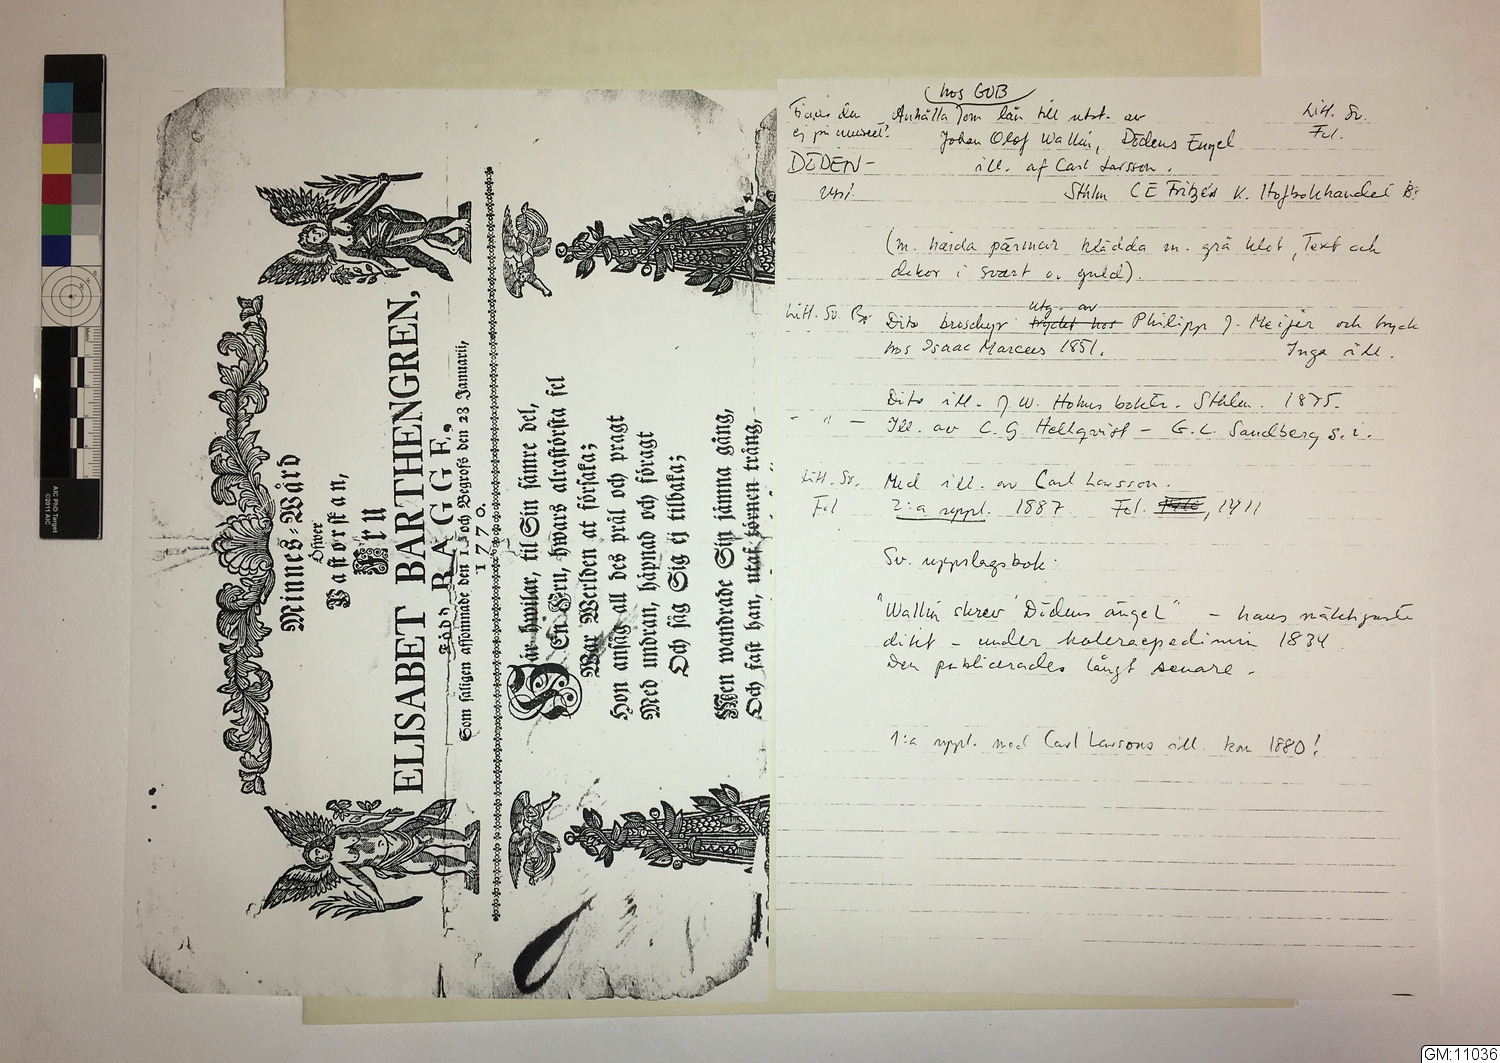 Minnes-Wård
Öfwer
Pastorskan,
Fru
ELISABET BARTHENGREN,
Född RAGGE,
Som saligen afsomnade den 13 och Begrofs den 28 Januarii,
1770.
Här hwilar, til Sin sämre del,
En Fru, hwars alrastörsta fel
War Werlden at försaka;
Hon ansåg all des prål och pragt
Med undran, häpnad och föragt
Och såg Sig ej tilbaka;
Men wandrade Sin jämna gång,
Och fast han, utaf törnen trång,
hos GUB
Finns den Anhålla om lån till utst. av Litt. Sv.
ej på museet? Johan Olof Wallin, Dödens Engel Fol.
DÖDEN- ill. af Carl Larsson.
Sthlm C E Fritze's K. Hofbokhandel
(m. hårda pärmar klädda m. grå klot, Text och
dekor i svart o. guld).
utg. av
Litt. Sv. Br Dito broschyr tryckt hos Philipp J. Meijer och tryck
hos Isaac Marcus 1851. Inga ill.
Dito ill. J. W. Holms boktr. Sthlm. 1875.
- " - Ill. av C. G Hellqvist - G. L. Sandberg s. i.
Litt. Sv. Med ill. av Carl Larsson.
Fol 2:a uppl. 1887 Fol. 1911
Sv. uppslagsbok:
"Wallin skrev 'Dödens ängel" - hans mäktigaste
dikt - under koleraepedimin 1834.
Den publicerades långt senare.
1:a uppl. med Carl Larssons ill. kom 1880!
AIC PhD Target
©2011 AIC
GM:11036